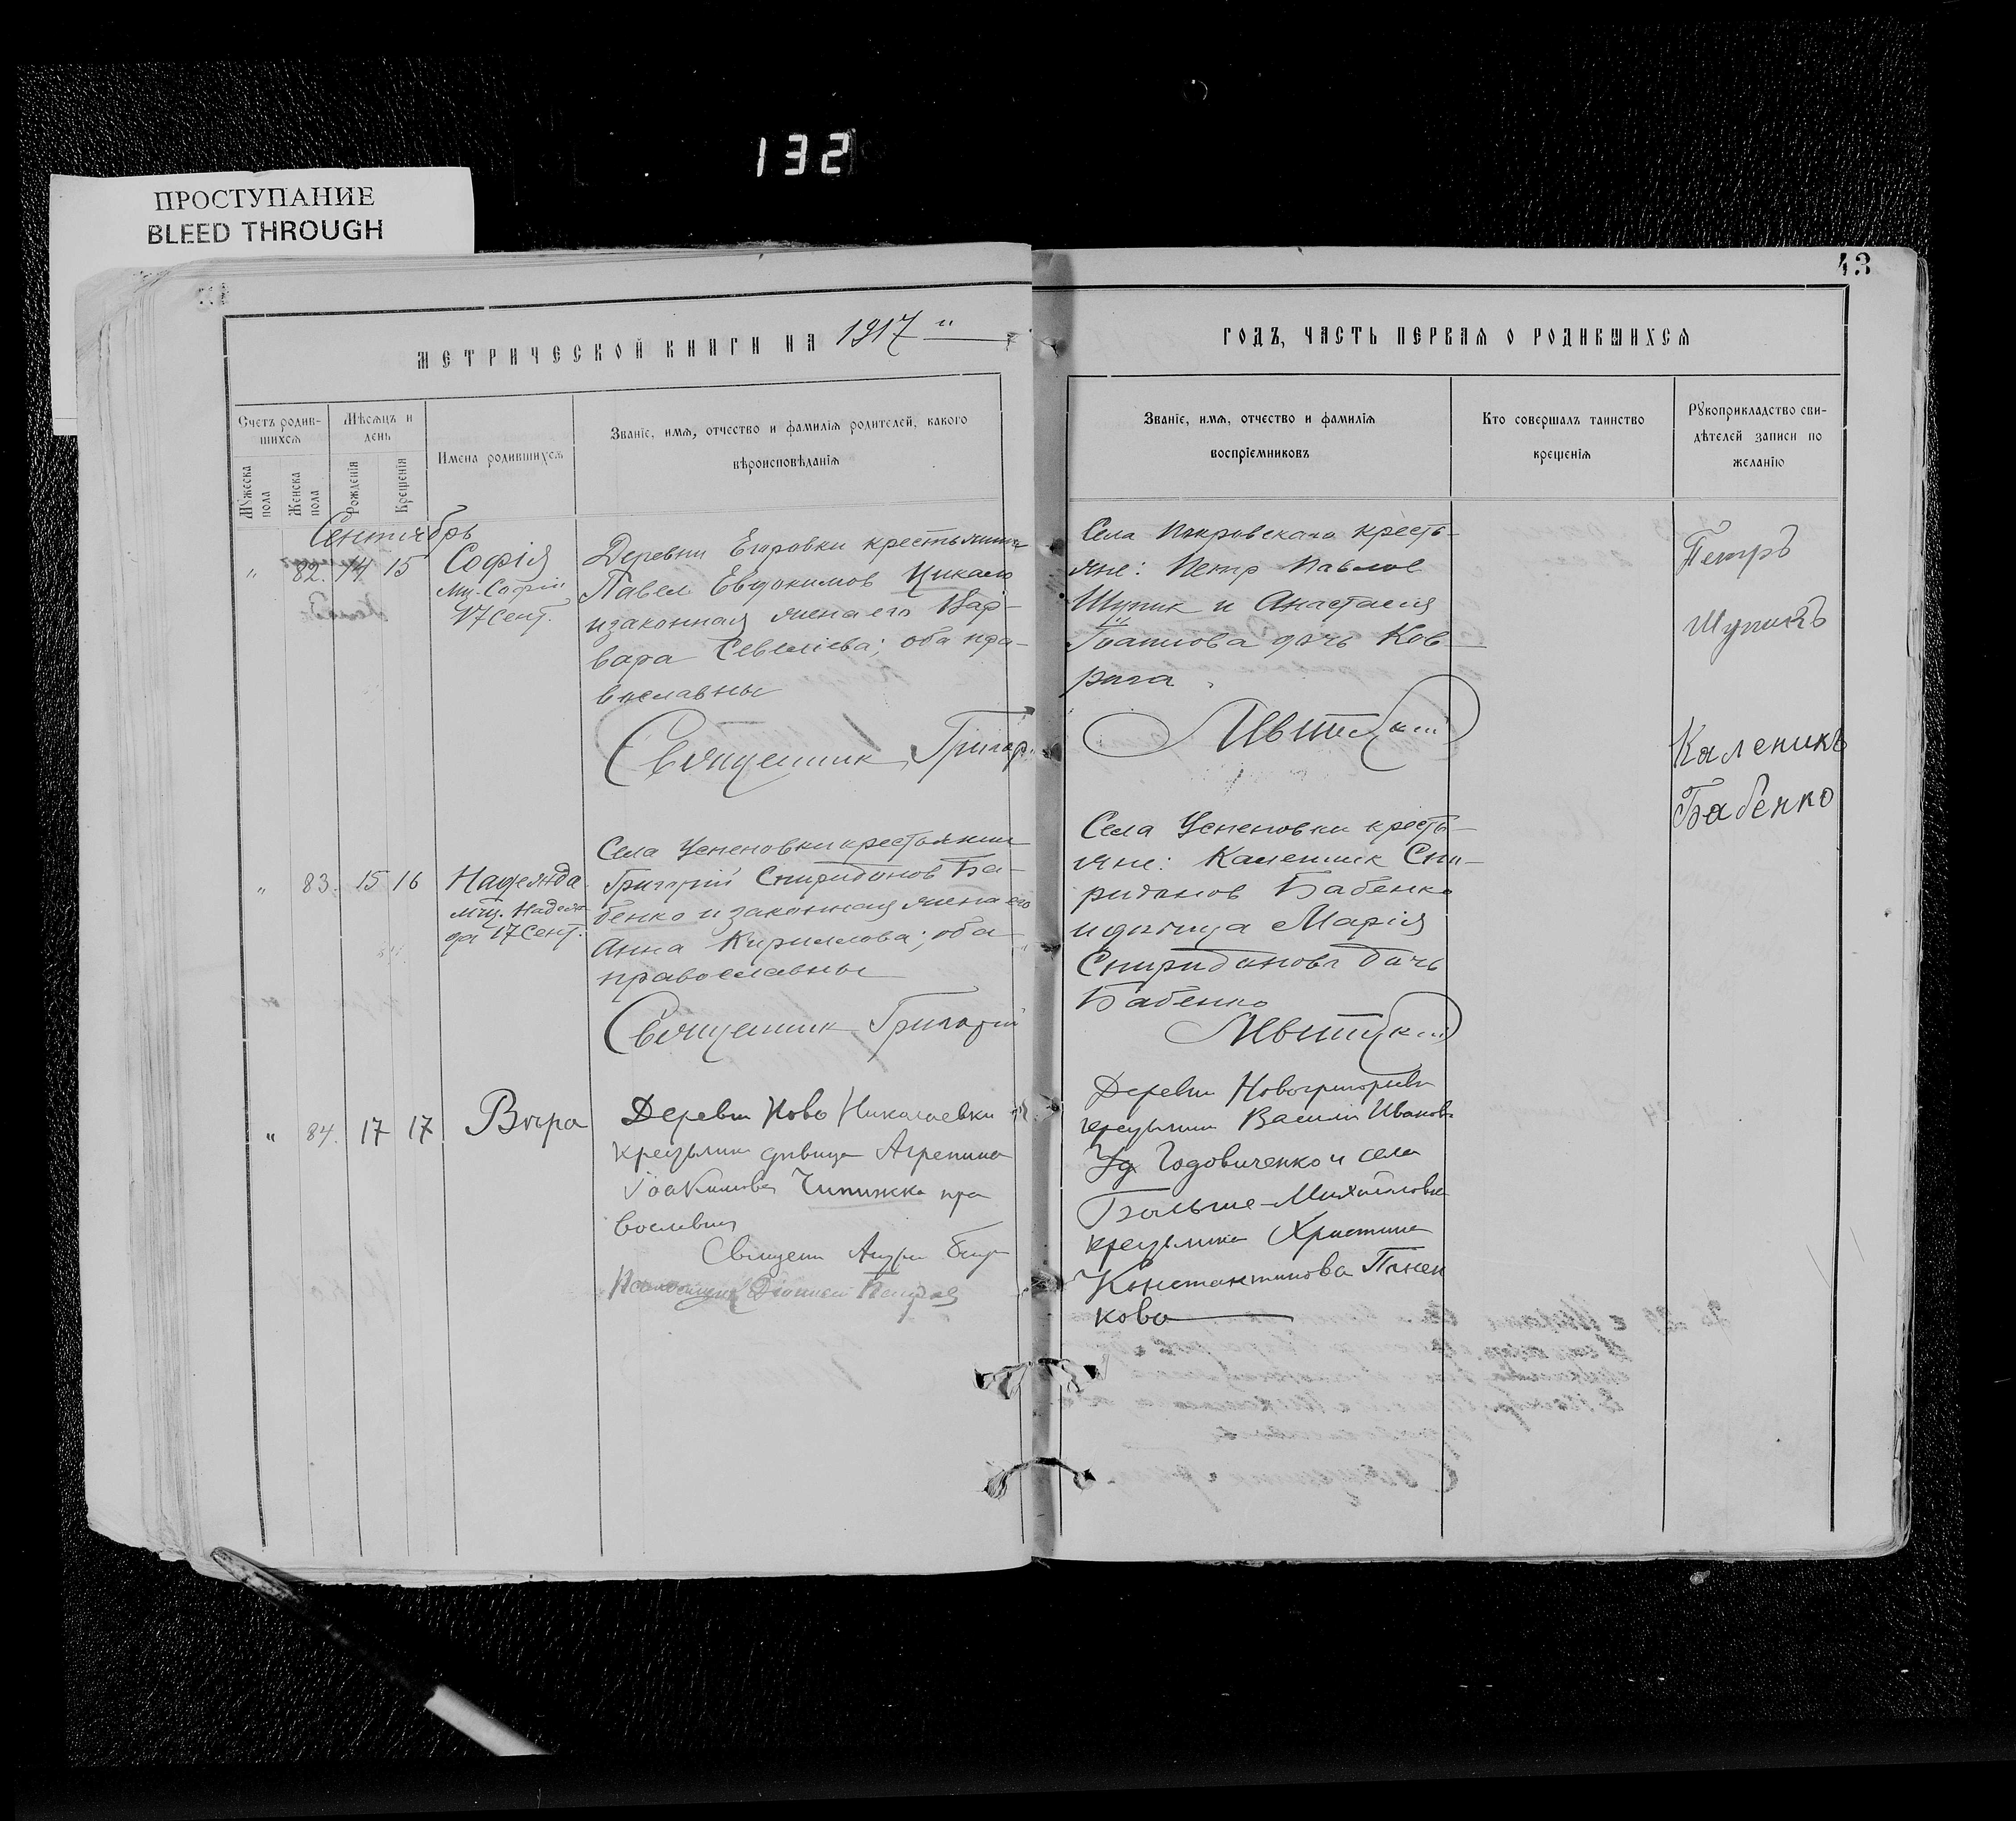 132
ПРОСТУПАНИЕ
BLEED THROUGH
43
МЕТРИЧЕСКОЙ КНИГИ НА 1917
ГОДЪ, ЧАСТЬ ПЕРВАЯ О РОДИВШИХСЯ
Счетъ родившихся
Мужеска пола
Женска пола
Мѣсяцъ и день
Рожденія
Крещенія
Имена родившихся
Званіе, имя, отчество и фамилія родителей, какого
вѣроисповѣданія
Званіе, имя, отчество и фамилія
воспріемниковъ
Кто совершалъ таинство
крещенія
Рукоприкладство сви-
дѣтелей записи по
желанію
Сентябрь
" 82. 14 15
Софія
Мц. Софіи
17 сент.
Деревни Егоровки крестьянинъ
Павел Евдокимов Цикало
и законная жена его Вар-
вара Савеліева; оба пра-
вославны
Священник Григор.
Села Покровскаго кресть-
яне: Петр Павлов
Щупик и Анастасия
дочь Ков-
рига
Петръ
Щупикъ
" 83. 15 16
Надежда
мц. Надеж-
да 17 сент.
Села Успеновки крестьянин
Григорій Спиридонов Ба-
бенко и законная жена его
Анна Кириллова; оба
православны
Священник Григорий
Села Успеновки кресть-
яне: Каленик Спи-
ридонов Бабенко
и девица Марія
Спиридонова дочь
Бабенко
Каленикъ
Бабенко
" 84. 17 17
Вѣра
Деревни Ново Николаевки
крестьянка дѣвица Агрепина
Іоакимова Чипижка пра
вославная
Деревни Новогригоревки
крестьянин Василій Иванов
Годовиченко и села
Больше-Михайловки
крестьянка Христина
Константинова Панен
кова